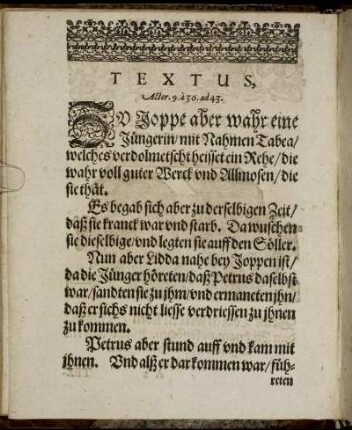 TEXTUS,
Actor. 9. à 36. ad 43.
ZV Joppe aber wahr eine
Jüngerin/ mit Nahmen Tabea/
welches verdolmetscht heisset ein Rehe/ die
wahr voll guter Werck vnd Allmosen/ die
sie thät.
Es begab sich aber zu derselbigen Zeit/
daß sie kranck war vnd starb. Da wuschen
sie dieselbige/ vnd legten sie auff den Söller.
Nun aber Lidda nahe bey Joppen ist/
da die Jünger höreten/ daß Petrus daselbst
war/ sandten sie zu jhm/ vnd ermaneten jhn/
daß er sichs nicht liesse verdriessen zu jhnen
zu kommen.
Petrus aber stund auff vnd kam mit
jhnen. Vnd alß er dar kommen war/ füh-
reten